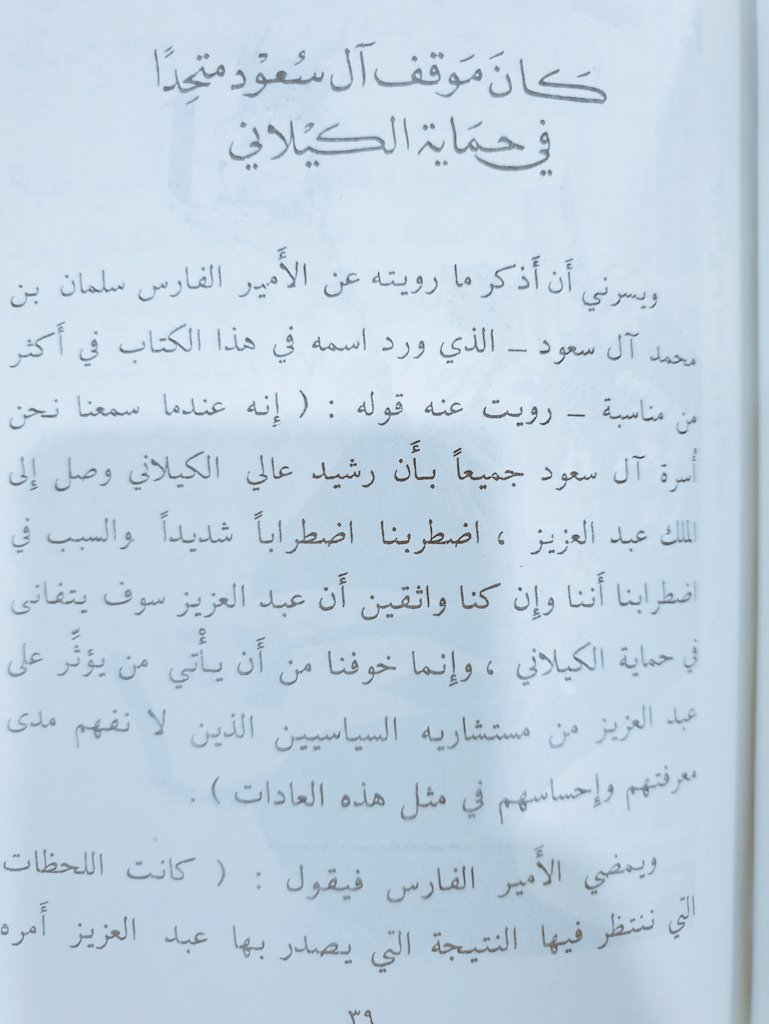 كَانَ مَوقف آل سُعوْد متحِدًا
في حمَاية الكَيْلاني
ويسرني أَن أَذكر ما رويته عن الأَمير الفارس سلمان بن
محمد آل سعود ــ الذي ورد اسمه في هذا الكتاب في أَكثر
من مناسبة ــ رويت عنه قوله : ( إِنه عندما سمعنا نحن
أُسرة آل سعود جميعاً بأَن رشيد عالي الكيلاني وصل إِلى
الملك عبد العزيز ، اضطربنا اضطراباً شديداً والسبب في
اضطرابنا أَننا وإِن كنا واثقين أَن عبد العزيز سوف يتفانى
في حماية الكيلاني ، وإِنما خوفنا من أَن يأْتي من يؤثِّر على
عبد العزيز من مستشاريه السياسيين الذين لا نفهم مدى
معرفتهم وإِحساسهم في مثل هذه العادات ) .
ويمضي الأَمير الفارس فيقول : ( كانت اللحظات
التي ننتظر فيها النتيجة التي يصدر بها عبد العزيز أَمره
٣٩